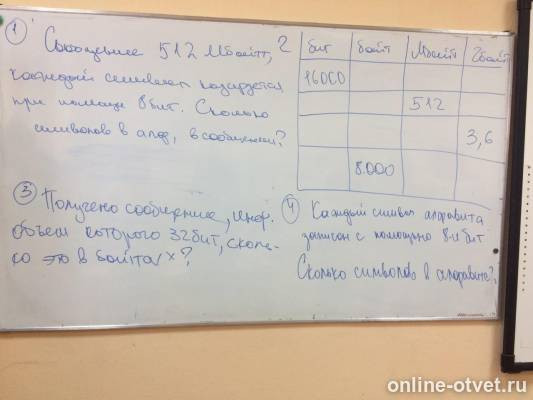 ① Сообщение 512 Мбайт,
каждый символ кодируется
при помощи 8 бит. Сколько
символов в алф, в сообщении?
2
бит байт Мбайт Гбайт
16000
512
3,6
8.000
③ Получено сообщение, инф.
объем которого 32бит, сколь-
ко это в байтах?
④ Каждый символ алфавита
записан с помощью 8-и бит
Сколько символов в алфавите?
online-otvet.ru